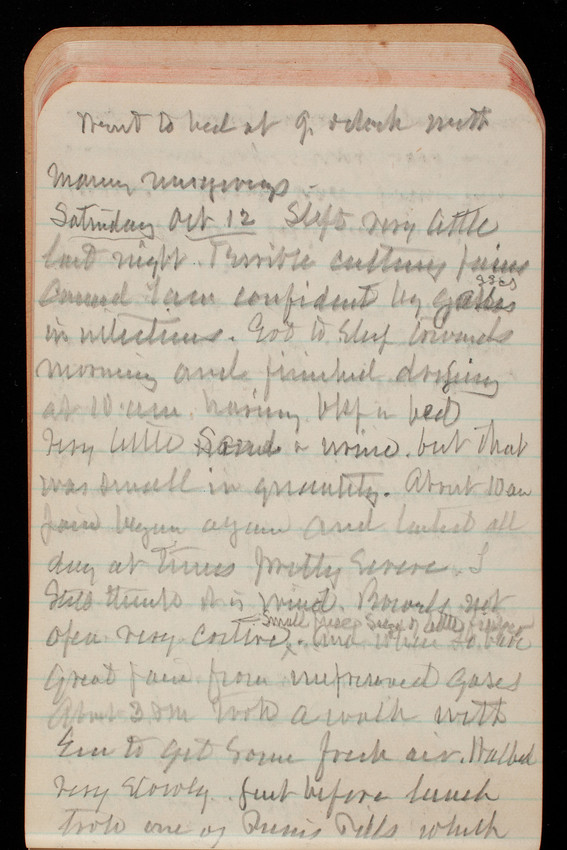 Went to bed at 9. o'clock with
many misgivings.
Saturday Oct 12 Slept very little
last night. Terrible cutting pains
caused I am confident by gases
gases
in intestines. Got to sleep towards
morning and finished dressing
at 10 am. having
very little Sand & urine. but that
was small in quantity. About 10 am
pain began again and lasted all
day at times pretty severe. I
still think it is wind. Bowels not
Small pieces size of little finger
open very costive. and when so have
great pain from unpassed gases
About 3 PM Took a walk with
Em to get some fresh air. Walked
very slowly. Just before lunch
took one of Pills which